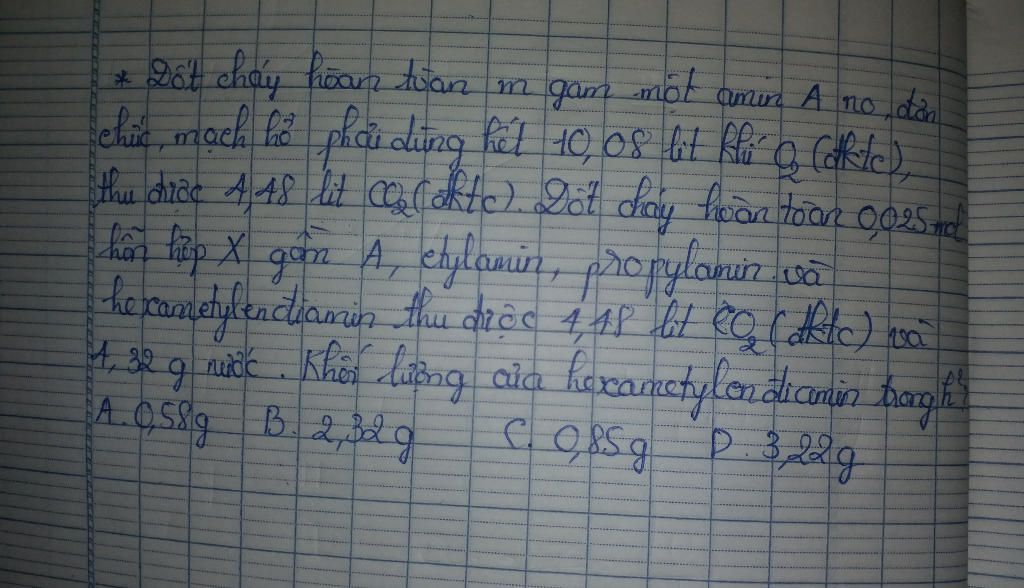 * Đốt cháy hoàn toàn m gam một amin A no, đơn
chức, mạch hở phải dùng hết 10,08 lit khí O2 (đktc),
thu được 4,48 lit CO2 (đktc). Đốt cháy hoàn toàn 0,025 mol
hỗn hợp X gồm A, etylamin, propylamin và
hexametylenđiamin thu được 4,48 lit CO2 (đktc) và
4,32 g nước. Khối lượng của hexametylen điamin trong h²
A. 0,58g B. 2,32g C. 0,85g D. 3,22g